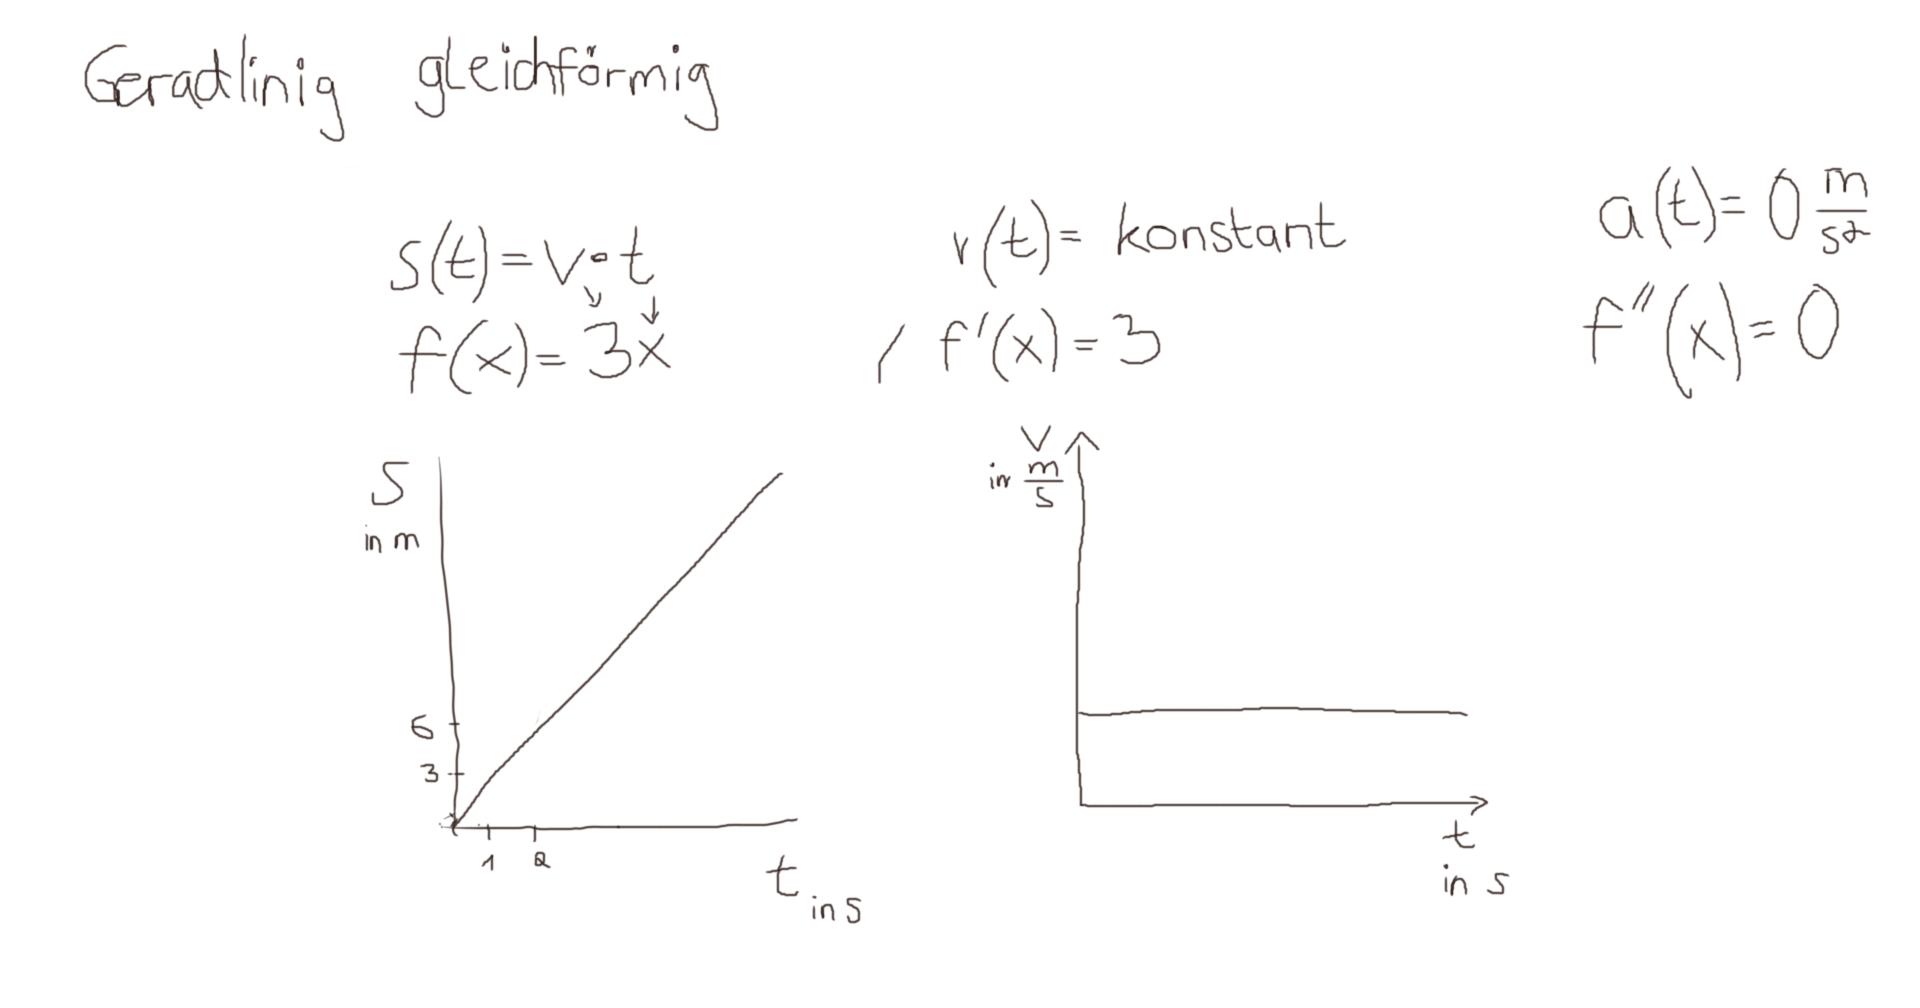 Geradlinig gleichförmig
s(t) = v · t
f(x) = 3x
v(t) = konstant
f'(x) = 3
a(t) = 0 m/s²
f''(x) = 0
S
in m
6
3
1 2
t in s
V
in m/s
t
in s